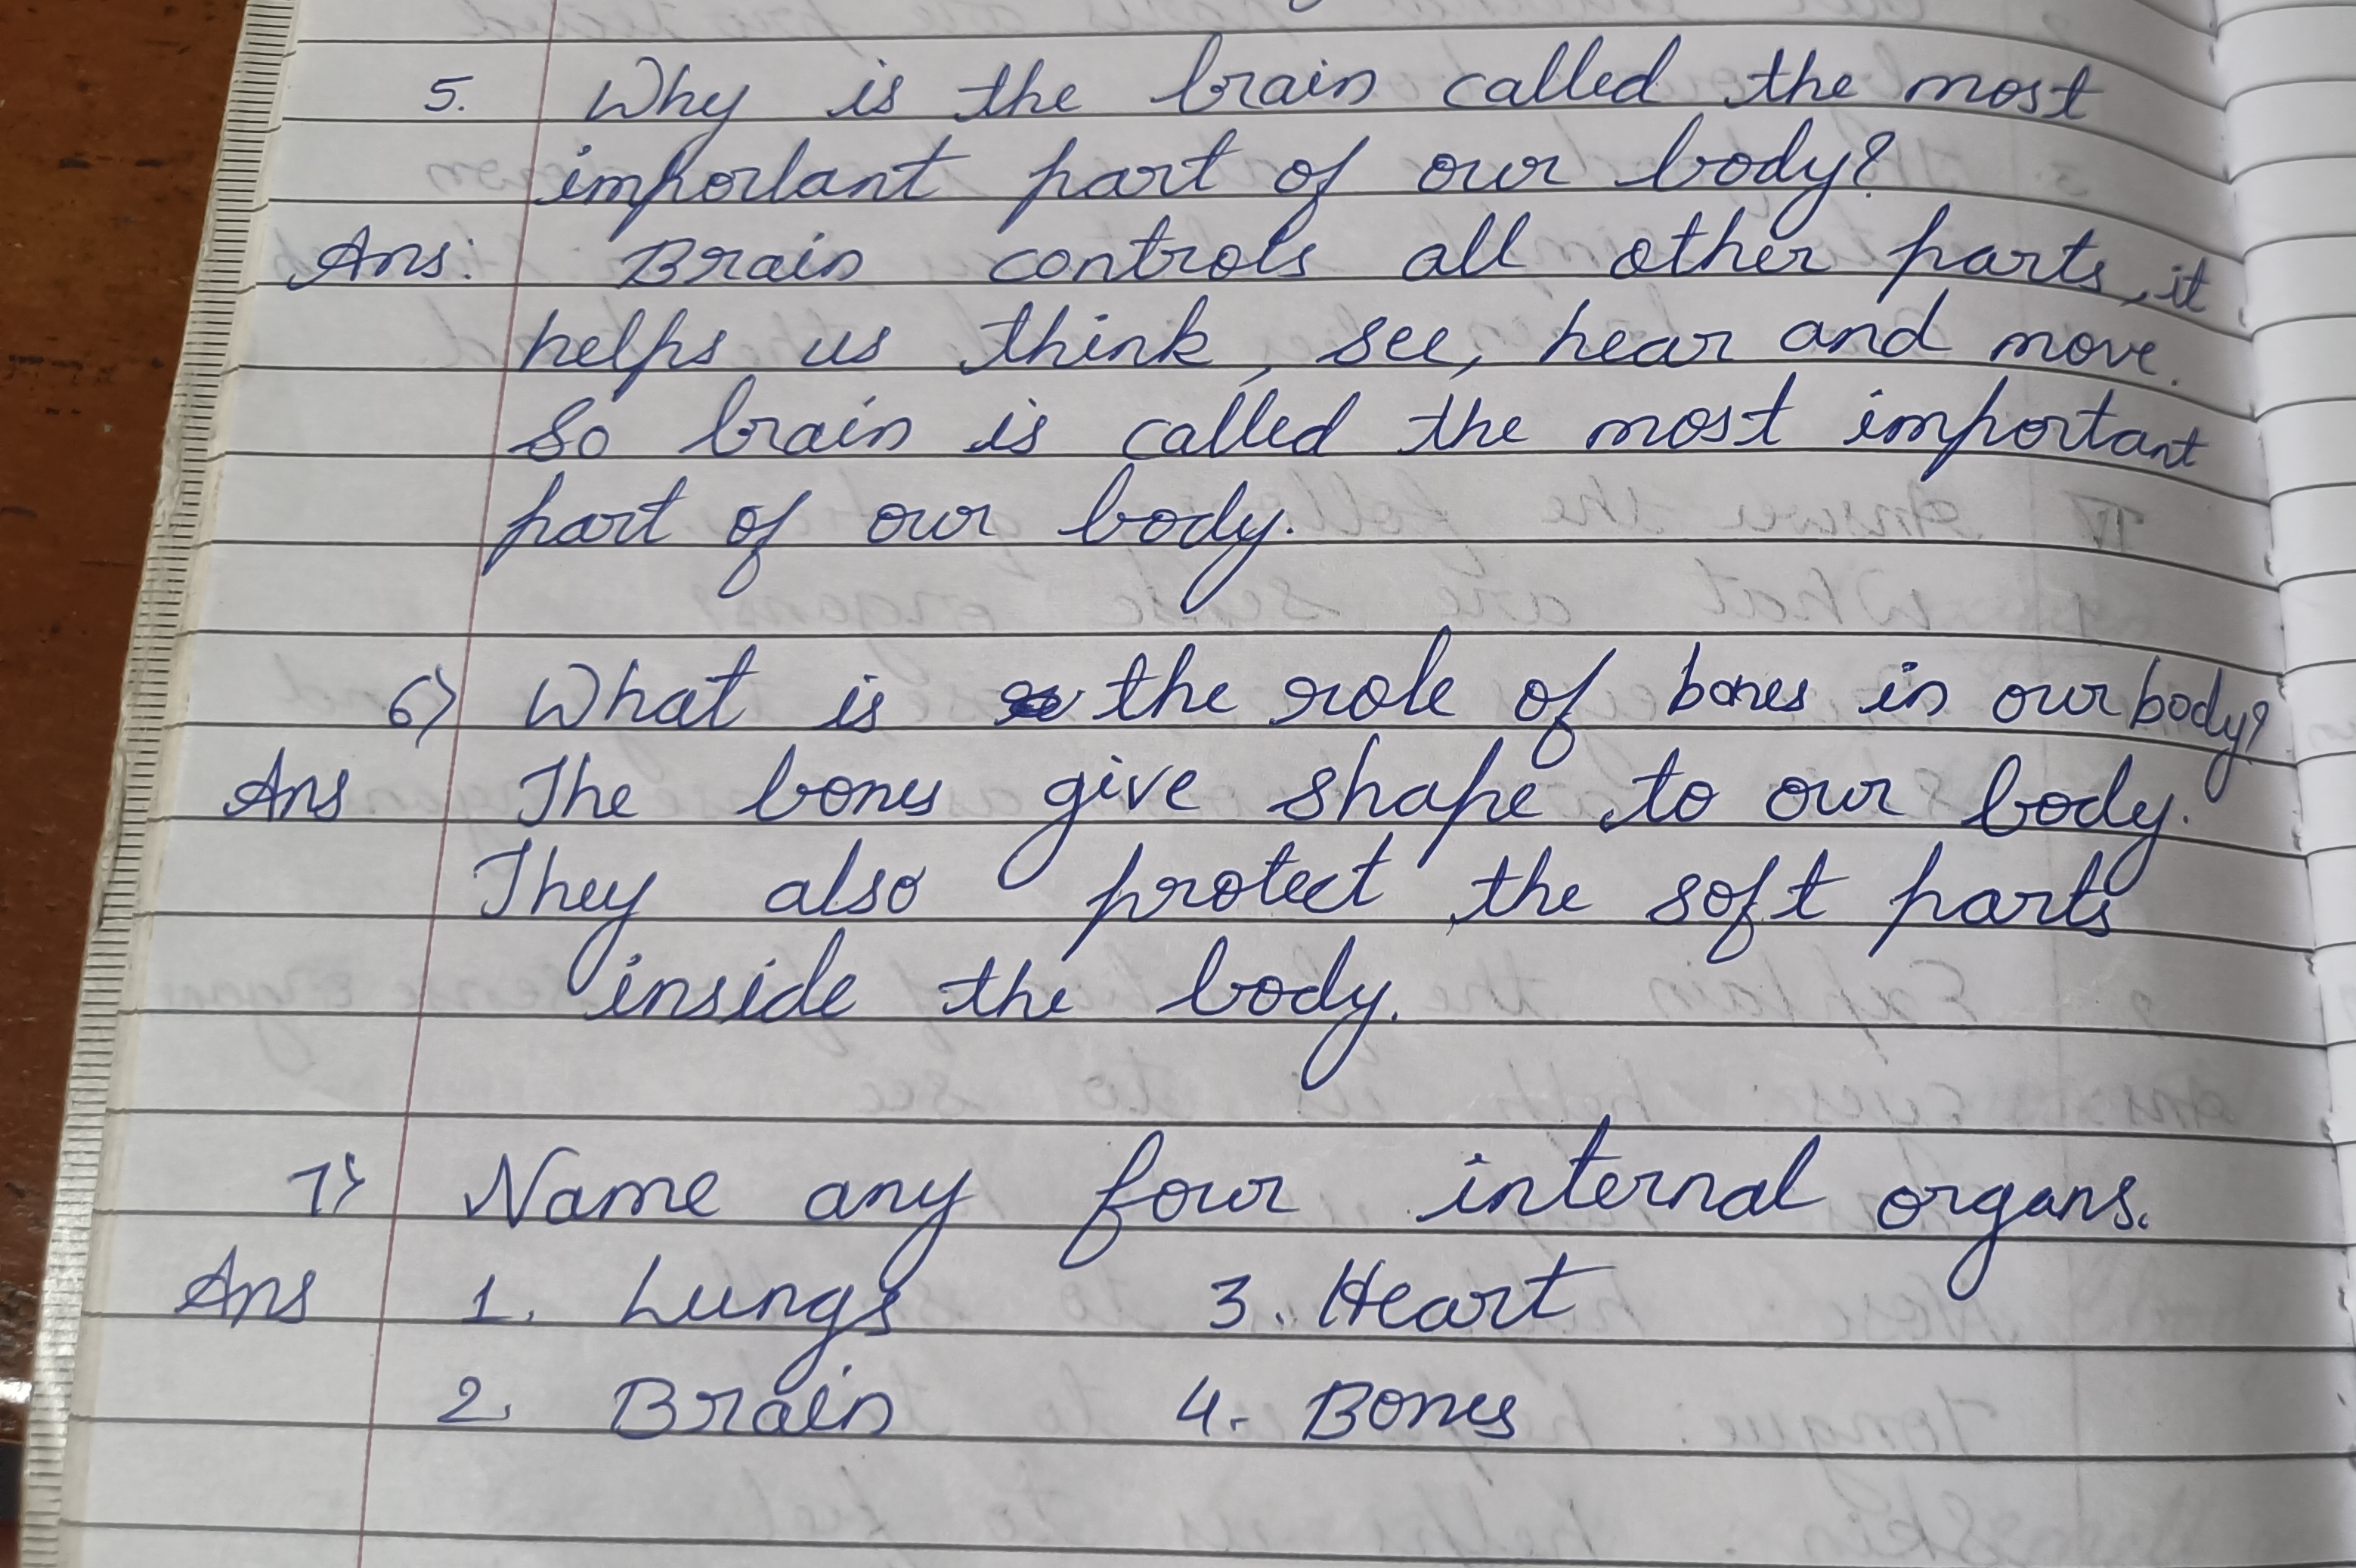 5. Why is the brain called the most
important part of our body?
Ans: Brain controls all other parts, it
helps us think, see, hear and move.
So brain is called the most important
part of our body.
6) What is the role of bones in our body?
Ans The bones give shape to our body.
They also protect the soft parts
inside the body.
7) Name any four internal organs.
Ans 1. Lungs 3. Heart
2. Brain 4. Bones